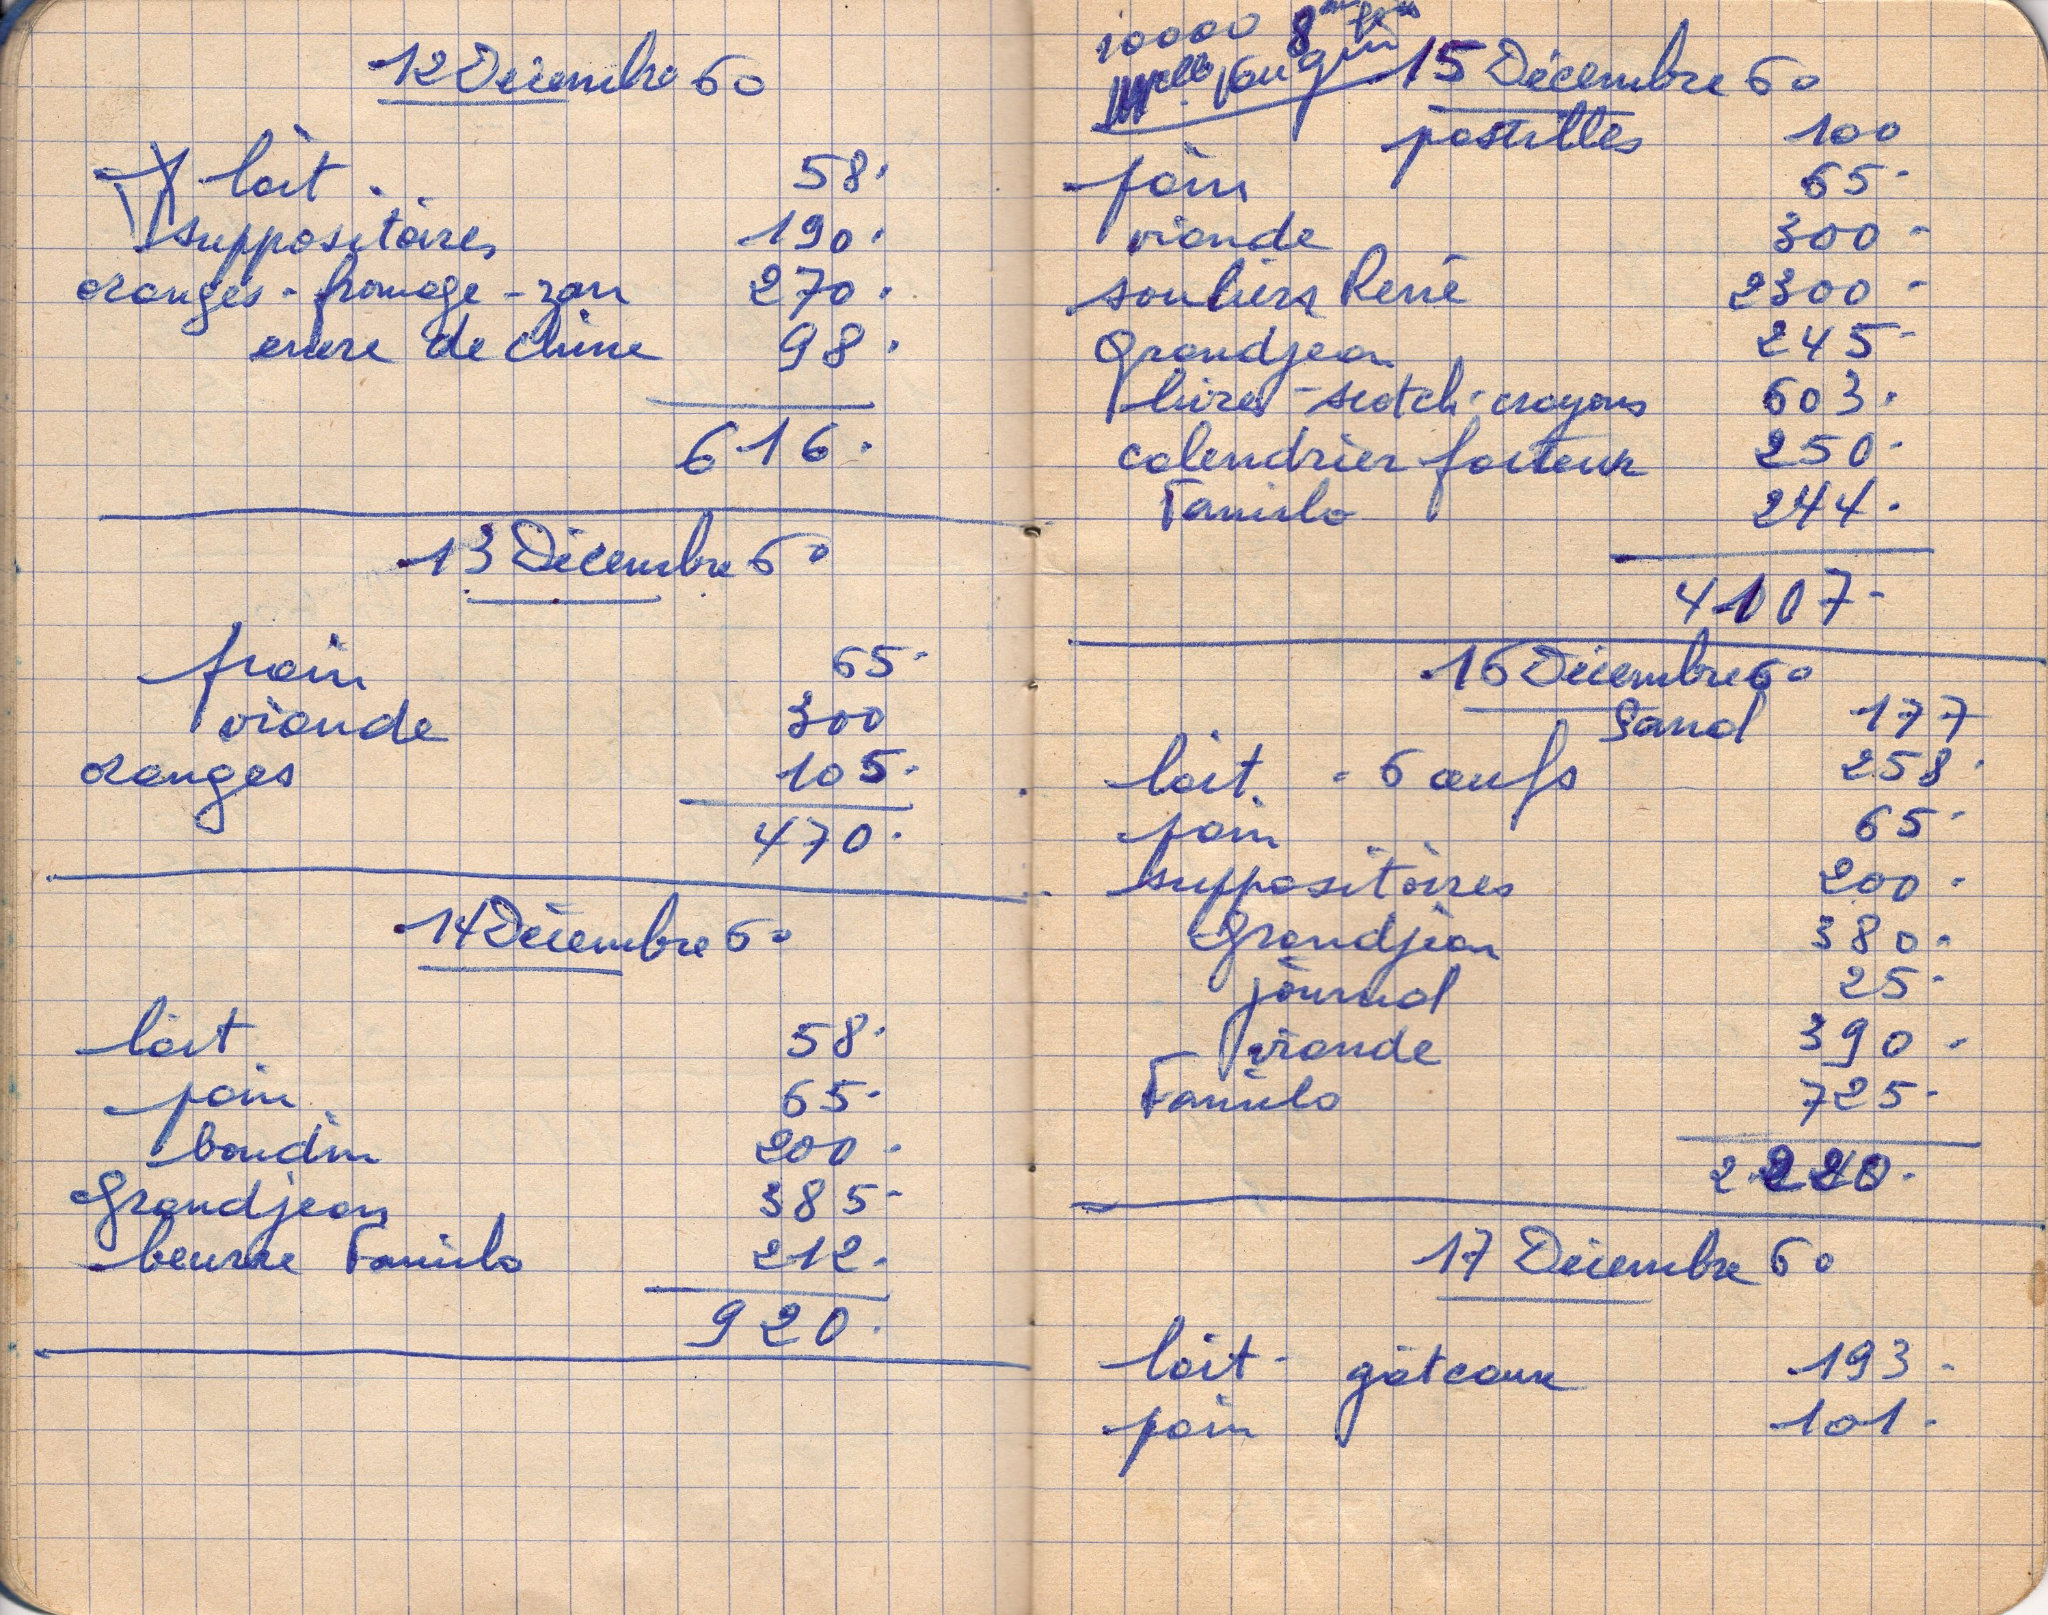 12 Décembre 60
lait. 58.
suppositoires 190.
oranges - fromage - zan 270.
encre de chine 98.
616.
13 Décembre 60
pain 65.
viande 300
oranges 105.
470.
14 Décembre 60
lait 58.
pain 65.
boudin 200.
Grandjean 385-
beurre Familo 212.
920.
10000
15 Décembre 60
pastilles 100
pain 65.
viande 300-
souliers René 2300-
Grandjean 245-
livres - scotch - crayons 603.
calendrier facteur 250.
Familo 244.
4107-
16 Décembre 60
177
lait - 6 œufs 258.
pain 65.
suppositoires 200.
Grandjean 380.
journal 25.
viande 390.
Familo 725.
17 Décembre 60
lait - gâteaux 193.
pain 101.